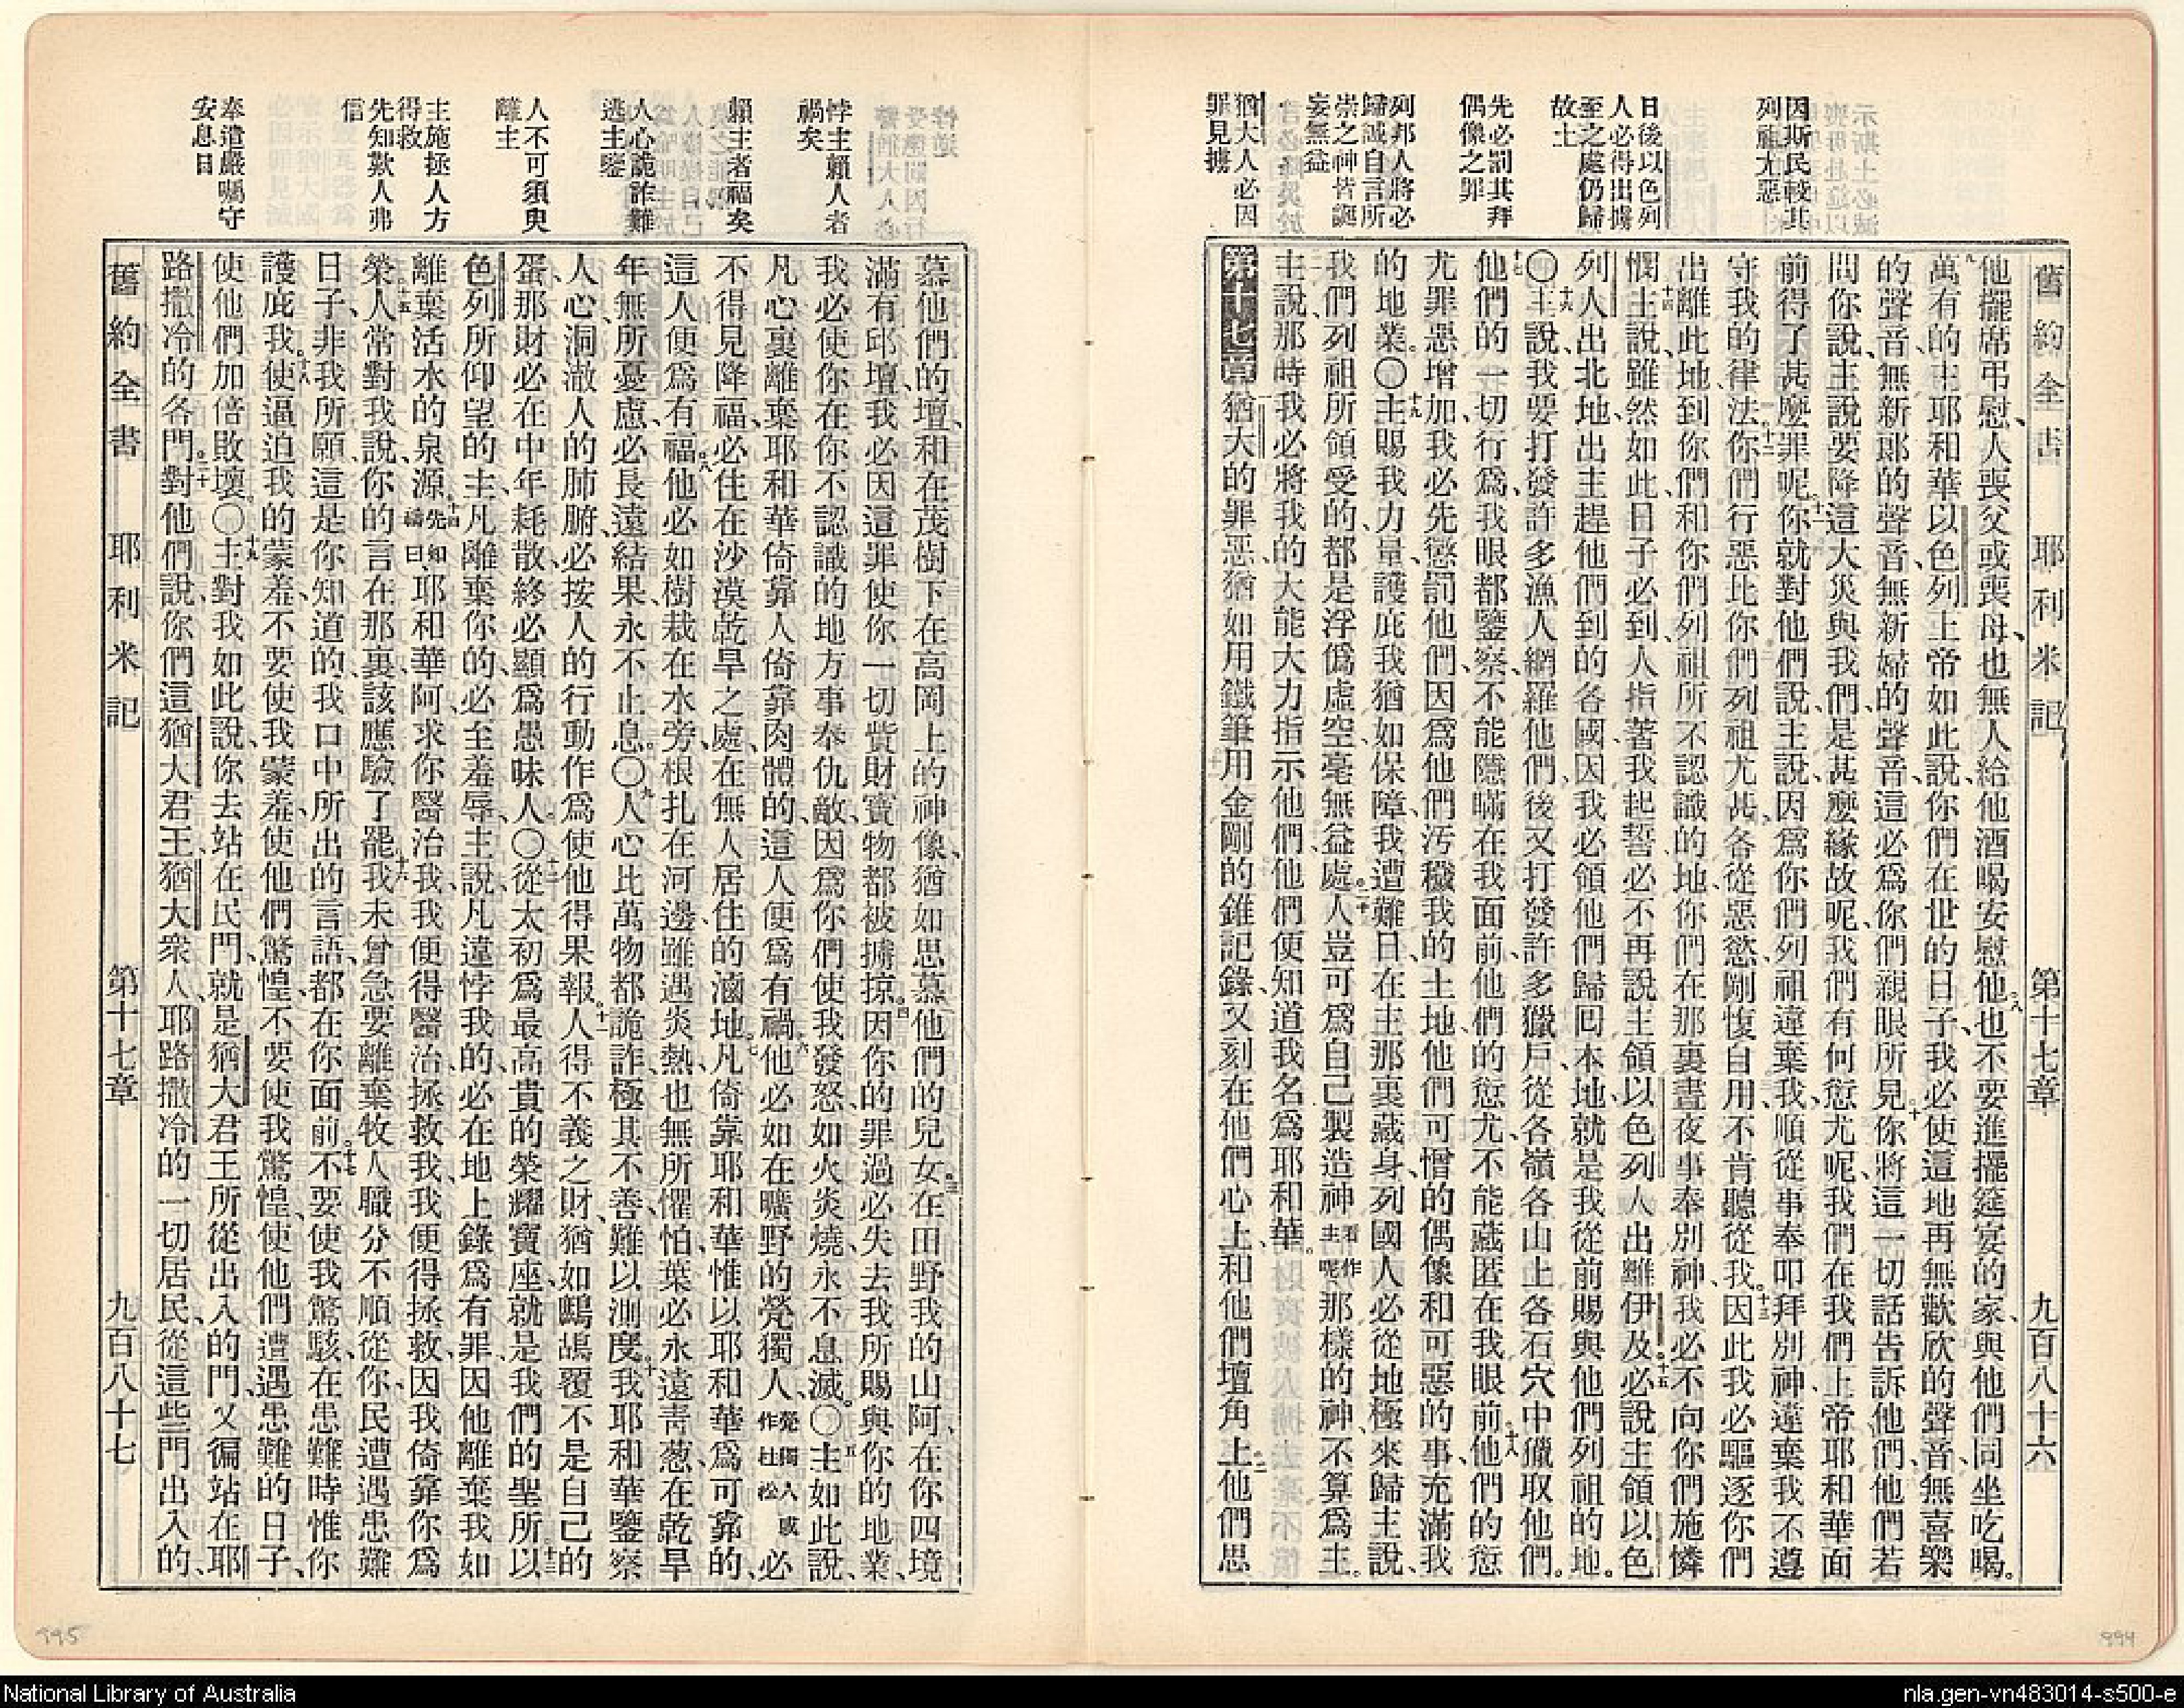 因斯民較其
列祖尤惡
日後以色列
人必得出擄
至之處仍歸
故土
先必罰其拜
偶像之罪
列邦人將必
歸誠自言所
崇之神皆誕
妄無益
猶大人必因
罪見擄
舊約全書 耶利米記 第十七章 九百八十六
他擺席弔慰、人喪父或喪母、也無人給他酒喝安慰他、八也不要進擺筵宴的家、與他們同坐吃喝。
九萬有的主耶和華以色列上帝如此說、你們在世的日子、我必使這地再無歡欣的聲音、無喜樂
的聲音、無新郎的聲音、無新婦的聲音、這必為你們親眼所見。十你將這一切話告訴他們、他們若
問你說、主說要降這大災與我們、是甚麼緣故呢、我們有何愆尤呢、我們在我們上帝耶和華面
前得了甚麼罪呢。十一你就對他們說、主說因為你們列祖違棄我、順從事奉叩拜別神、違棄我、不遵
守我的律法。十二你們行惡比你們列祖尤甚、各從惡慾、剛愎自用、不肯聽從我。十三因此我必驅逐你們
出離此地、到你們和你們列祖所不認識的地、你們在那裏晝夜事奉別神、我必不向你們施憐
憫。十四主說、雖然如此、日子必到、人指著我起誓、必不再說主領以色列人出離伊及、十五必說主領以色
列人出北地、出主趕他們到的各國、因我必領他們歸回本地、就是我從前賜與他們列祖的地。
〇十六主說、我要打發許多漁人網羅他們、後又打發許多獵戶、從各嶺各山上各石穴中獵取他們。
十七他們的一切行為、我眼都鑒察、不能隱瞞在我面前、他們的愆尤、不能藏匿在我眼前。十八他們的愆
尤罪惡增加、我必先懲罰他們、因為他們汚穢我的土地、他們可憎的偶像和可惡的事、充滿我
的地業。〇十九主賜我力量、護庇我猶如保障、我遭難日、在主那裏藏身、列國人必從地極來歸主、說、
我們列祖所領受的、都是浮僞虛空、毫無益處。二十人豈可為自己製造神、看作主呢那樣的神、不算為主。
主說、那時我必將我的大能大力指示他們、他們便知道我名為耶和華。
第十七章 猶大的罪惡、猶如用鐵筆用金剛的錐記錄、又刻在他們心上、和他們壇角上、二他們思
悖主賴人者
禍矣
賴主者福矣
人心詭詐難
逃主鑒
人不可須臾
離主
主施拯人方
得救
先知歎人弗
信
奉遣嚴囑守
安息日
慕他們的壇、和在茂樹下在高岡上的神像、猶如思慕他們的兒女。三在田野我的山阿、在你四境
滿有邱壇、我必因這罪使你一切貲財寶物都被擄掠。四因你的罪過、必失去我所賜與你的地業、
我必使你在你不認識的地方事奉仇敵、因為你們使我發怒如火炎燒、永不息滅。〇五主如此說、
凡心裏離棄耶和華、倚靠人倚靠肉體的、這人便為有禍。六他必如在曠野的煢獨人、煢獨人或作杜松必
不得見降福、必住在沙漠乾旱之處、在無人居住的滷地。七凡倚靠耶和華、惟以耶和華為可靠的、
這人便為有福。八他必如樹栽在水旁、根扎在河邊、雖遇炎熱、也無所懼怕、葉必永遠靑葱、在乾旱
年無所憂慮、必長遠結果、永不止息。〇九人心比萬物都詭詐、極其不善、難以測度。十我耶和華鑒察
人心、洞澈人的肺腑、必按人的行動作為、使他得果報。十一人得不義之財、猶如鷓鴣覆不是自己的
蛋、那財必在中年耗散、終必顯為愚昧人。〇十二從太初為最高貴的榮耀寶座、就是我們的聖所。十三以
色列所仰望的主、凡離棄你的、必至羞辱、主說、凡遠悖我的、必在地上錄為有罪、因他離棄我如
離棄活水的泉源。十四先知禱曰耶和華阿、求你醫治我、我便得醫治、拯救我、我便得拯救、因我倚靠你為
榮。十五人常對我說、你的言在那裏、該應驗了罷。十六我未曾急要離棄牧人職分、不順從你、民遭遇患難
日子、非我所願、這是你知道的、我口中所出的言語、都在你面前。十七不要使我驚駭、在患難時惟你
護庇我。十八使逼迫我的蒙羞、不要使我蒙羞、使他們驚惶、不要使我驚惶、使他們遭遇患難的日子、
使他們加倍敗壞。〇十九主對我如此說、你去站在民門、就是猶大君王所從出入的門、又徧站在耶
路撒冷的各門。二十對他們說、你們這猶大君王、猶大衆人、耶路撒冷的一切居民、從這些門出入的、
舊約全書 耶利米記 第十七章 九百八十七
995
994
National Library of Australia
nla.gen-vn483014-s500-e